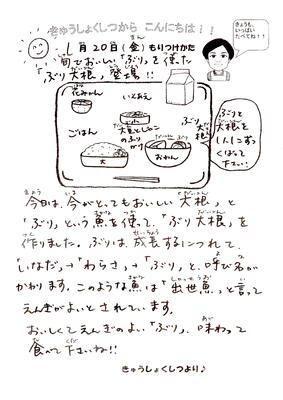 きゅうしょくしつから こんにちは!!
きょうも、
いっぱい
たべてね!!
1月20日(金)もりつけかた
旬でおいしい「ぶり」を使った
ぶり大根、登場!!
花みかん
いとあえ
ごはん
大豆とじゃこ
のふり
かけ
大
小
ぶり
大根
おわん
ぶりと
大根を
1こずつ
くばって
下さい!
今日は、今がとてもおいしい「大根」と
「ぶり」という魚を使って、「ぶり大根」を
作りました。ぶりは、成長するにつれて、
「いなだ」→「わらさ」→「ぶり」と、呼び名が
かわります。このような魚は「出世魚」と言って
えんぎがよいとされています。
おいしくてえんぎのよい「ぶり」、味わって
食べて下さいね!!
きゅうしょくしつより♪